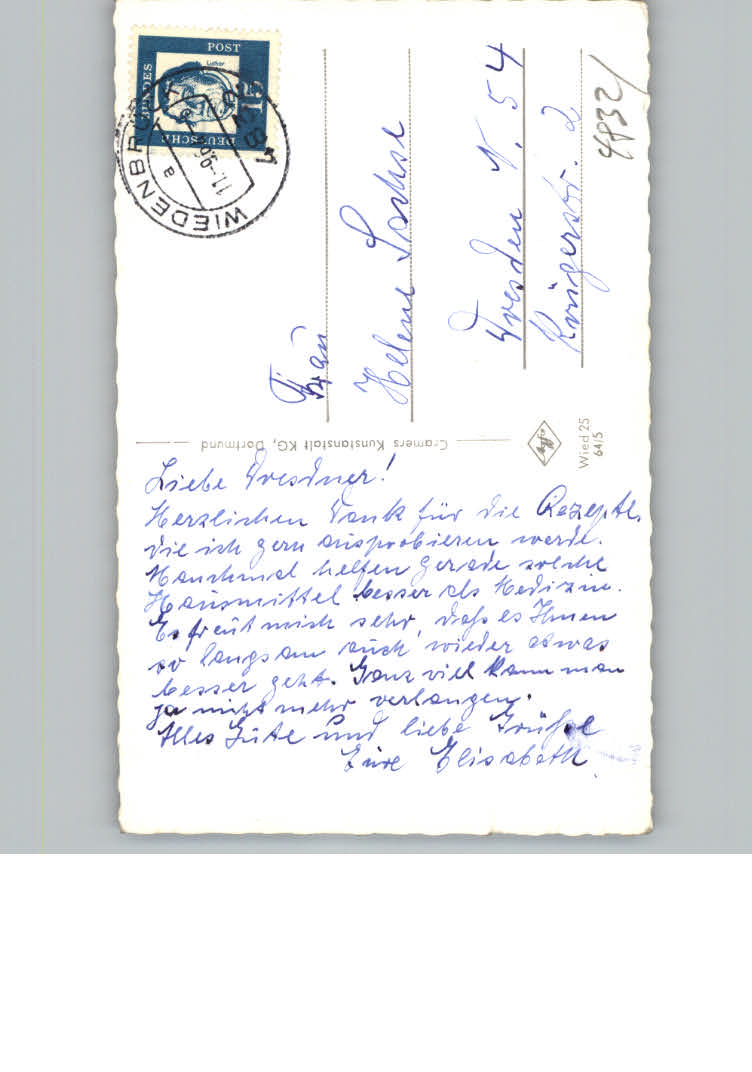 Liebe Dresdner!
Herzlichen Dank für die Rezepte,
die ich gern ausprobieren werde.
Manchmal helfen gerade solche
Hausmittel besser als Medizin.
Es freut mich sehr, daß es Ihnen
so langsam auch wieder etwas
besser geht. Ganz viel kann man
ja nicht mehr verlangen.
Alles Gute und liebe Grüße
Eure Elisabeth
Cramers Kunstanstalt KG, Dortmund
Agfa
Wied 25
64/5
Frau
Helene Sachse
Dresden N. 54
Krügerstr. 2
4832/
DEUTSCHE
BUNDES
POST
Luther
15
WIEDENBRÜCK
a